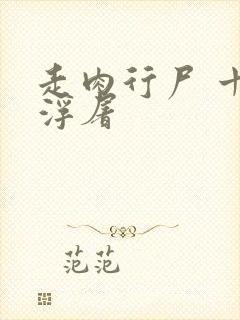 走肉行尸 十
浮屠
范范